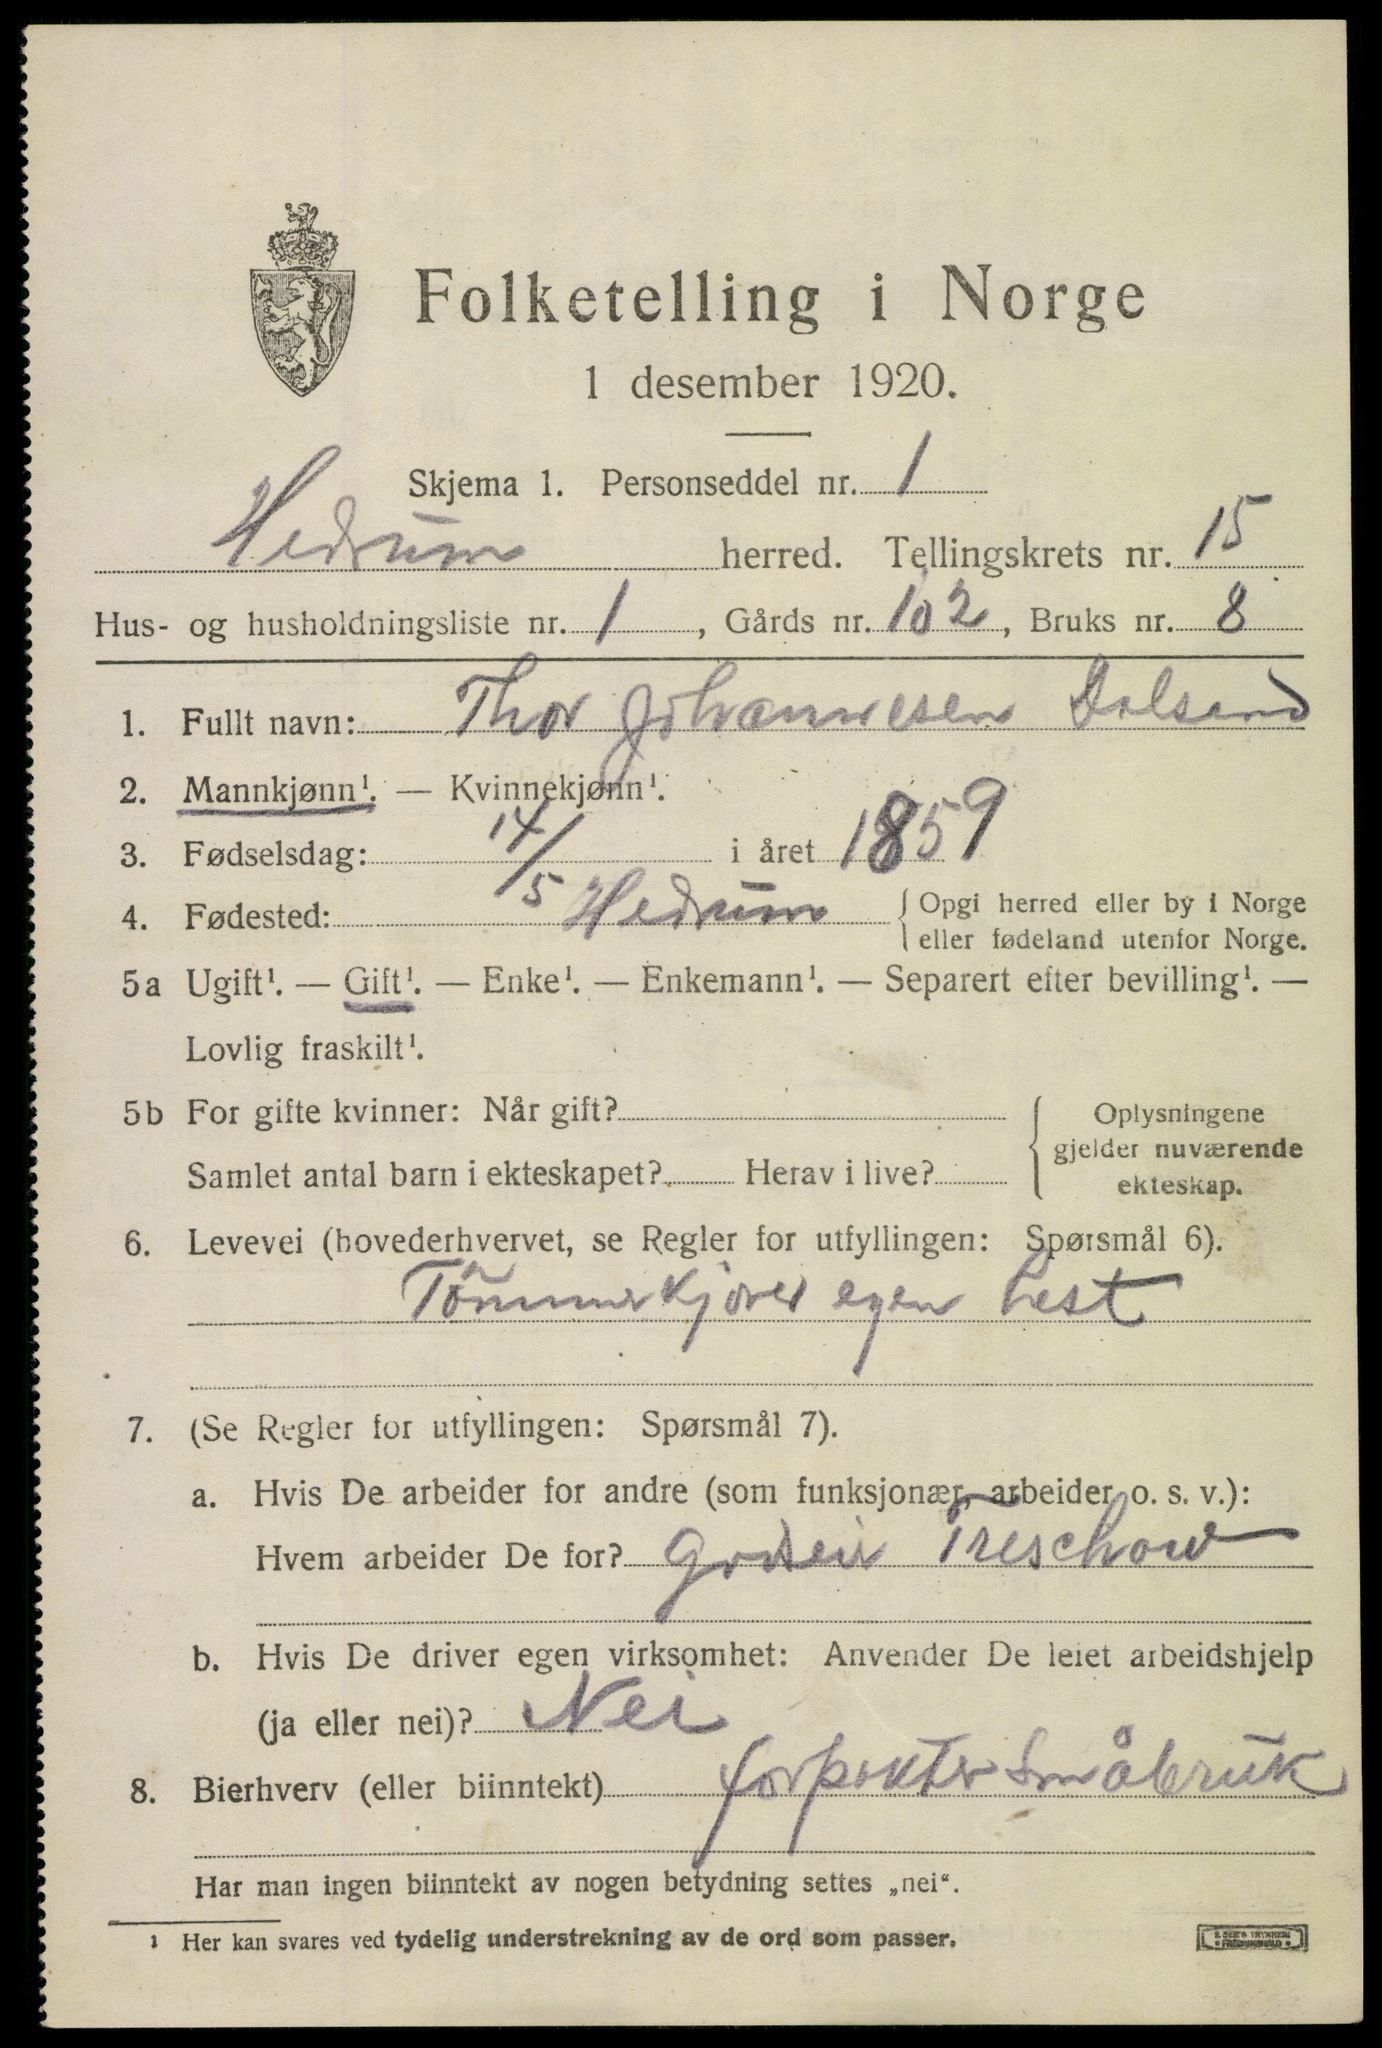 Folketelling i Norge
1 desember 1920.
Skjema 1. Personseddel nr. 1
Hedrum herred. Tellingskrets nr. 15
Hus- og husholdningsliste nr. 1, Gårds nr. 102, Bruks nr. 8
1. Fullt navn: Thor Johannesen Dalsand
2. Mannkjønn¹. — Kvinnekjønn¹.
3. Fødselsdag: 14/5 i året 1859
4. Fødested: Hedrum { Opgi herred eller by i Norge
eller fødeland utenfor Norge.
5a Ugift¹. — Gift¹. — Enke¹. — Enkemann¹. — Separert efter bevilling¹. —
Lovlig fraskilt¹.
5b For gifte kvinner: Når gift? { Oplysningene
gjelder nuværende
Samlet antal barn i ekteskapet? Herav i live? ekteskap.
6. Levevei (hovederhvervet, se Regler for utfyllingen: Spørsmål 6).
Tømmerkjører egen hest
7. (Se Regler for utfyllingen: Spørsmål 7).
a. Hvis De arbeider for andre (som funksjonær, arbeider o. s. v.):
Hvem arbeider De for? Godseier Treschow
b. Hvis De driver egen virksomhet: Anvender De leiet arbeidshjelp
(ja eller nei)? Nei
8. Bierhverv (eller biinntekt) forpakter Småbruk
Har man ingen biinntekt av nogen betydning settes „nei“.
¹ Her kan svares ved tydelig understrekning av de ord som passer.